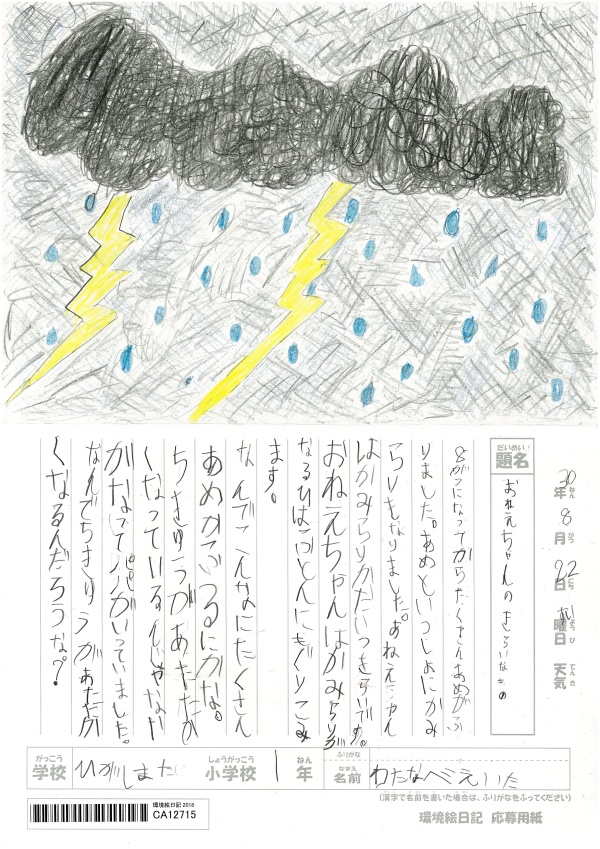 30年ねん8月がつ22日にち 曜ようび日 天気てんき
だいめい
題名
おねえちゃんのきらいなもの
8がつになってからたくさんあめがふ
りました。あめといっしょにかみ
らりもなりました。おねえちゃん
はかみらりがだいっきらいです。
おねえちゃんはかみらりが
なるひはふとんにもぐりこみ
ます。
なんでこんなにたくさん
あめがふるにかな。
ちきゅうがあたたか
くなっているんじゃないか
がなってパパがいっていました。
なんでちきゅうがあたたか
くなるんだろうな？
がっこう
学校
ひがしまた
しょうがっこう
小学校
1
ねん
年
ふりがな
なまえ
名前
わたなべえいた
(漢字で名前を書いた場合は、ふりがなをふってください)
環境絵日記 2018
CA12715
環境絵日記 応募用紙